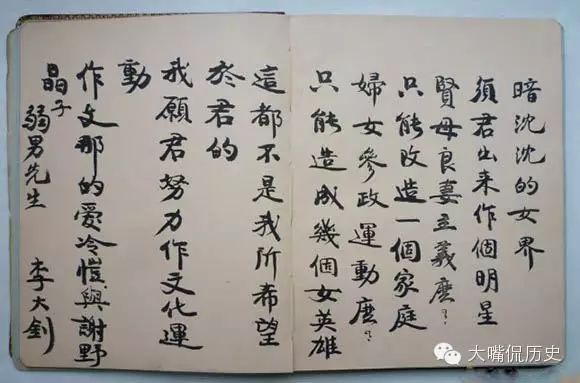 暗沈沈的女界
須君出来作個明星
賢母良妻主義麽？
只能改造一個家庭
婦女參政運動麽？
只能造成幾個女英雄
這都不是我所希望
於君的
我願君努力作文化運
動
作文那的愛冷愷與謝野
晶子
弱男先生 李大釗
大嘴侃历史